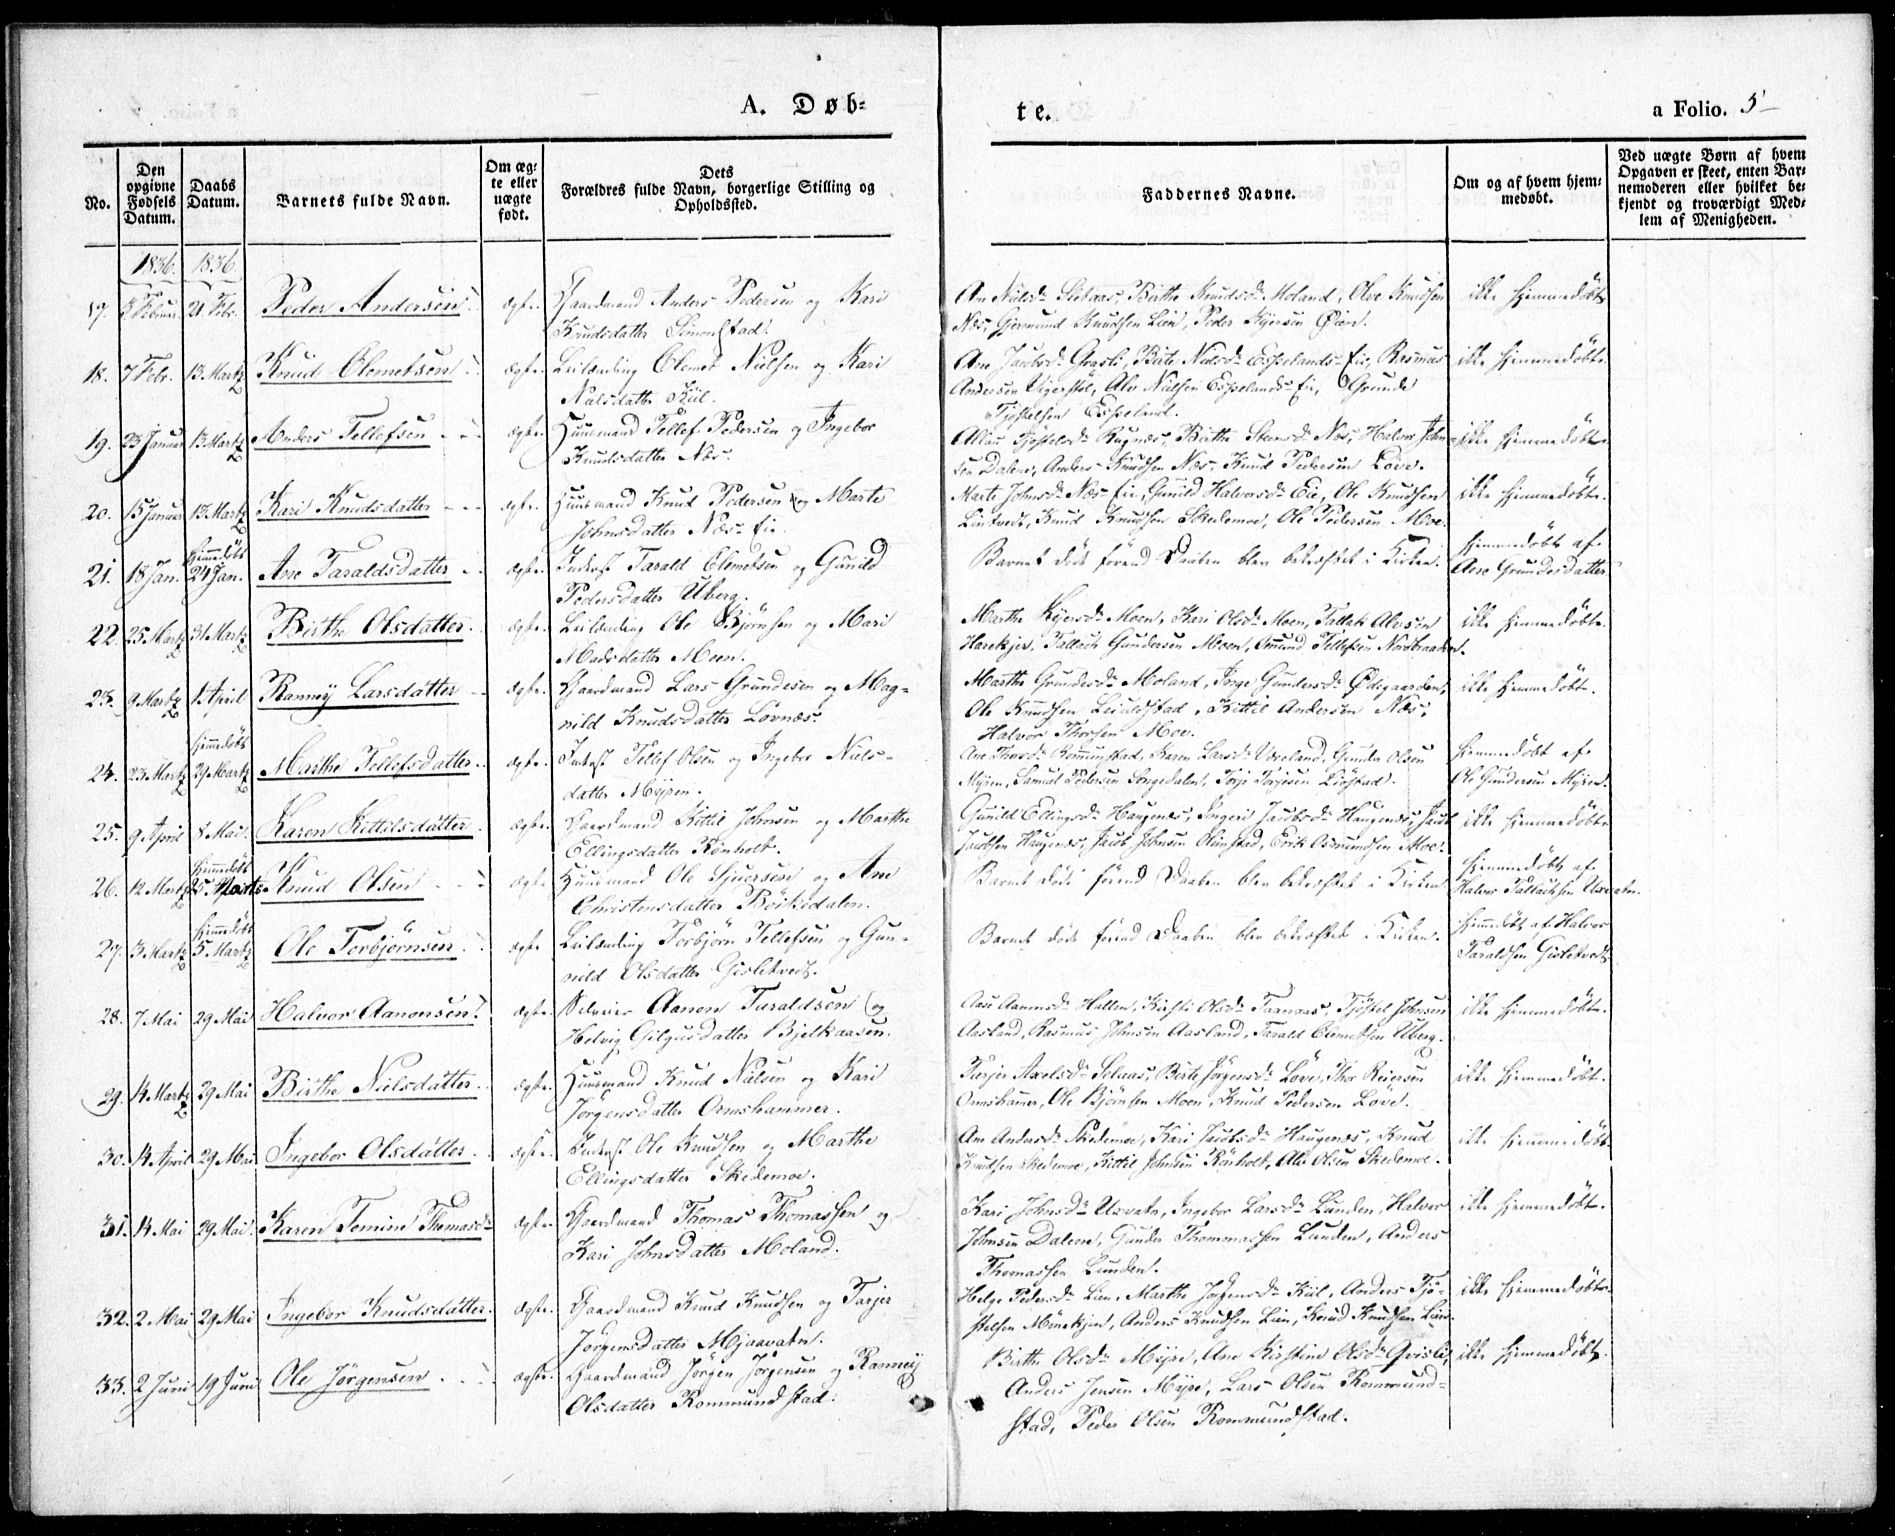 A. Døb-
te.
a Folio. 5
No.
Den opgivne Fødsels Datum.
Daabs Datum.
Barnets fulde Navn.
Om æg-te eller uægte født.
Dets Forældres fulde Navn, borgerlige Stilling og Opholdssted.
Faddernes Navne.
Om og af hvem hjem-medøbt.
Ved uægte Børn af hvem Opgaven er skeet, enten Bar-nemoderen eller hvilket be-kjendt og troværdigt Med-lem af Menigheden.
1836. 1836.
17. 8 Februar. 21 Febr. Peder Andersen ægte. Gaardmand Anders Pedersen og Kari
Knudsdatter Simonstad.
Birthe Knudsd. Moland, Olve Knudsen
Næs, Gjermund Knudsen Lien, Peder Øien.
ikke hjemmedöbt
18. 7 Febr. 13 Martz Knud Olemetsen ægte. Leilænding Olemet Nielsen og Kari
Nielsdatter Kiil.
Ane Jacobsd. Birte Nielsd. Esperlands-Eie, Rasmus
Andersen Vigerstøl, Alv Nielsen Espelands Eie, Grunde
Tjøstelsen Espeland.
ikke hjemmedöbt.
19. 23 Januar 13 Martz Anders Tellefsen ægte. Huusmand Tellef Pedersen og Ingebor
Knudsdatter Næs.
Birthe Næs, Halvor John-
sen Dalene, Anders Knudsen Næs, Knud Pedersen Löve.
ikke hjemmedöbt.
20. 15 Januar 13 Martz Kari Knudsdatter ægte. Huusmand Knud Pedersen og Marte
Johnsdatter Næs-Eie.
Marte Johnsd. Næs-Eie, Gunild Halvorsd. Eie, Ole Knudsen
Lintvedt, Knud Knudsen Skedemoe, Ole Pedersen Moe.
ikke hjemmedöbt.
21. 18 Jan. hjemmedöbt 24 Jan. Ane Taraldsdatter ægte. Inderst Tarald Olemetsen og Gunild
Pedersdatter Uberg.
Barnet døde førend Daaben blev bekræftet i Kirken.
hjemmedöbt af
Ane Grundesdatter
22. 25 Martz 31 Martz Birthe Olsdatter. ægte. Leilænding Ole Bjørnsen og Mari
Madsdatter Moen.
Marthe Moen, Kari Olsd. Moen, Tallak Alvsen
Harekjer, Tallack Gundersen Moen, Omund Tellefsen Nordbraaten.
ikke hjemmedöbt.
23. 9 Martz 1 April Ranney Larsdatter ægte. Gaardmand Lars Grundesen og Mag-
nild Knudsdatter Løvnæs.
Marthe Grundesd. Moland, Inge Gundersd. Ødegaarden,
Ole Knudsen Kittil Andersen Næs,
Halvor Thorsen Moe.
ikke hjemmedöbt.
24. 23 Martz hjemmedöbt 29 Martz Marthe Tellefsdatter ægte. Inderst Tellef Olsen og Ingebor Niels-
datter Myren.
Ane Thorsd. Rommunstad, Karen Larsd. Gunder Olsen
Myren, Samuel Pedersen Songedalen, Torje Torjesen
hjemmedöbt af
Ole Gundersen Myren.
25. 9 April 8 Mai. Karen Kittilsdatter ægte. Gaardmand Kittil Johnsen og Marthe
Ellingsdatter Rønholt.
Gunild Ellingsd. Haugenes, Ingeri Jacobsd. Haugenes, Jacob
Jacobsen Haugenes, Jacob Johnsen Olimstad, Erik Osmundsen Moe.
ikke hjemmedöbt
26. 12 Martz hjemmedöbt 25 Marts Knud Olsen ægte. Huusmand Ole Sjversen og Ane
Christensdatter Böikedalen.
Barnet døde førend Daaben blev bekræftet i Kirken
hjemmedöbt af
Halvor Tallaksen Uxvatn.
27. 3 Martz hjemmedöbt 5 Martz Ole Torbjørnsen ægte Leilænding Torbjørn Tellefsen og Gun-
nild Olsdatter Gisletvedt.
Barnet døde førend Daaben blev bekræftet i Kirken.
hjemmedöbt af Halvor
Taraldsen Gisletvedt
28. 7 Mai 29 Mai Halvor Aanonsen. ægte. Selveier Aanon Taraldsen og
Helvig Gilgusdatter Bjelkaasen.
Aase Aanonsd. Hallen, Kirsti Olsd. Tarnaas, Tjöstel Johnsen
Aasland, Rasmus Johnsen Aasland, Tarald Olemetsen Uberg.
ikke hjemmedöbt.
29. 14 Martz 29 Mai Birthe Nielsdatter ægte. Huusmand Knud Nielsen og Kari
Jörgensdatter Ormshammer.
Tarjer Axelsd. Selaas, Birte Jörgensd. Löve, Thor Reiersen
Ormshamer, Ole Bjørnsen Moen, Knud Pedersen Löve.
ikke hjemmedöbt.
30. 14 April 29 Mai Ingebor Olsdatter ægte. Inderst Ole Knudsen og Marthe
Ellingsdatter Skedemoe.
Ane Andersd. Skedemoe, Kari Jacobsd. Haugenes, Knud
Knudsen Skedemoe, Kittil Johnsen Rönholt, Ole Olsen Skedemoe.
ikke hjemmedöbt
31. 14 Mai 29 Mai. Karen Tomine Thomasd. ægte. Gaardmand Thomas Thomassen og
Kari Johnsdatter Moland.
Kari Johnsd. Uxvatn, Ingebor Larsd. Lunden, Halvor
Johnsen Dalene, Gunder Thommassen Lunden, Anders
Thomassen Lunden.
ikke hjemmedöbt.
32. 2 Mai 29 Mai Ingebor Knudsdatter. ægte. Gaardmand Knud Knudsen og Tarjer
Jørgensdatter Mjaavatn.
Helge Pedersd. Lien, Marthe Jørgensd. Kiil, Anders Tjö-
stelsen Anders Knudsen Lien, Knud Knudsen Lien
ikke hjemmedöbt.
33. 2 Juni 19 Juni Ole Jörgensen ægte. Gaardmand Jörgen Jörgensen og Ranney
Olsdatter Rommundstad.
Birthe Olsd. Myre, Ane Kirstine Olsd. Qvisli,
Anders Jensen Myre, Lars Olsen Rommund-
stad, Peder Olsen Rommundstad.
ikke hjemmedöbt.